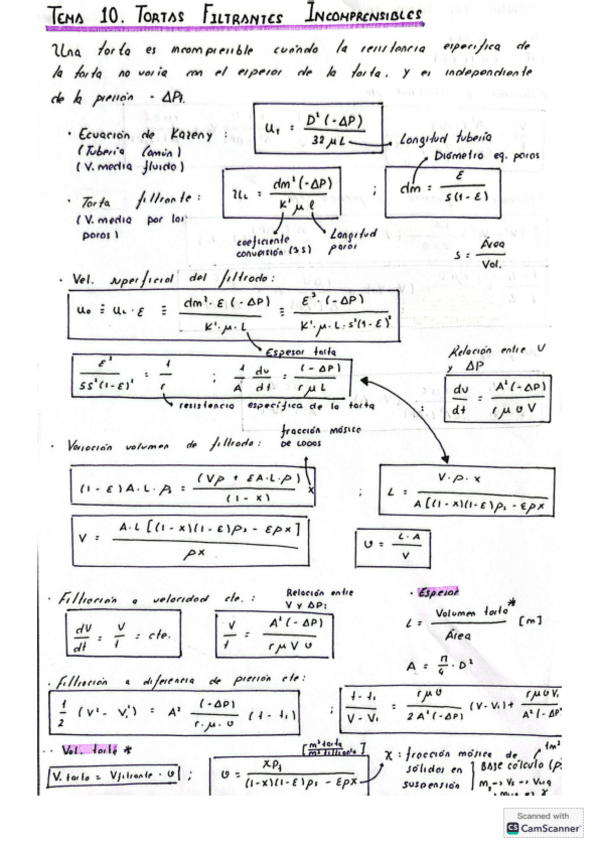 TEMA 10. TORTAS FILTRANTES INCOMPRENSIBLES
Una torta es incompresible cuando la resistencia especifica de
la torta no varia con el espesor de la torta, y es independiente
de la presión - ΔPi.
· Ecuación de Kozeny :
(Tuberia Común)
(V. media fluido)
u₁ = D² (-ΔP) / 32 μ L
Longitud tuberia
Diámetro eq. poros
· Torta filtrante :
(V. media por los
poros)
u₁ = dm² (-ΔP) / K' μ ℓ ; dm = ε / S (1-ε)
coeficiente
conversión (3,5)
Longitud
poros
S = Área / Vol.
· Vel. superficial del filtrado :
u₀ ≡ u₁ · ε ≡ dm² · ε (-ΔP) / K' · μ · L ≡ ε³ · (-ΔP) / K' · μ · L · s² (1-ε)²
Espesor torta
ε³ / 5s² (1-ε)² = 1 / r ; 1/A dv/dt = (-ΔP) / r μ L
resistencia especifica de la torta
Relación entre V
y ΔP
: dv/dt = A² (-ΔP) / r μ υ V
· Variación volumen de filtrado :
fracción másica
de lodos
(1-ε) A · L · ρs = (Vρ + εA · L · ρ) / (1-x) x ; L = V · ρ · x / A [(1-x)(1-ε)ρs - ερx]
V = A · L [(1-x)(1-ε)ρs - ερx] / ρx
υ = L · A / V
· Filtración a velocidad cte. :
Relación entre
V y ΔP:
dV/dt = V/t = cte.
V/t = A² (-ΔP) / r μ V υ
· Espesor
L = Volumen torta* / Área [m]
A = π/4 · D²
· Filtración a diferencia de presión cte:
1/2 (V² - V₁²) = A² (-ΔP) / r · μ · υ (t - t₁) ; t - t₁ / V - V₁ = r μ υ / 2A² (-ΔP) (V - V₁) + r μ υ V₁ / A² (-ΔP
·· Vol. torta *
V. torta = Vfiltrante · υ ;
[m³ torta / m³ filtrado]
υ = xρ₁ / (1-x)(1-ε)ρs - ερx
x : fracción másica de
sólidos en
suspensión
1m³
BASE CÁLCULO (ρ
Scanned with
CS CamScanner